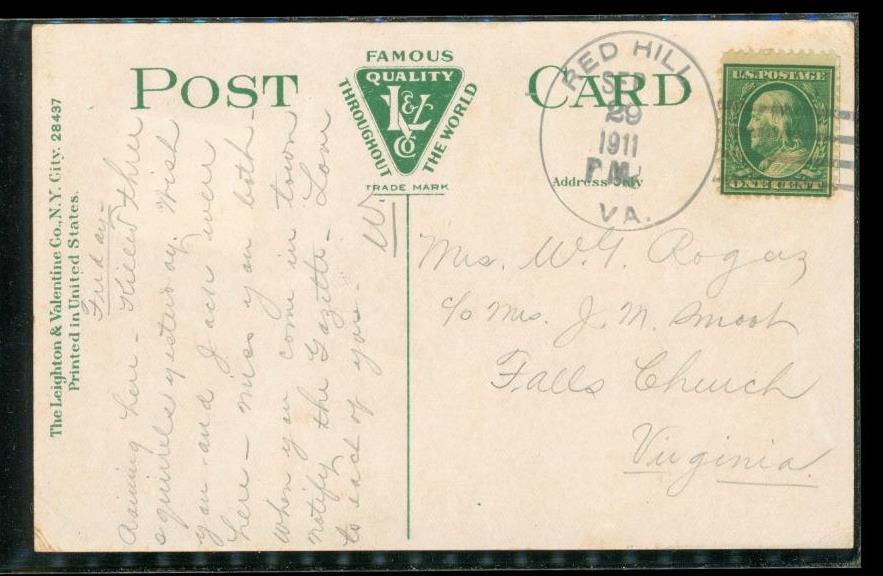 POST CARD
FAMOUS
QUALITY
THROUGHOUT
THE WORLD
L&V Co
TRADE MARK
Address Only
RED HILL
SEP
29
1911
P.M.
VA.
U.S. POSTAGE
ONE CENT
The Leighton & Valentine Co., N.Y. City. 28437
Printed in United States.
Friday -
Raining here - Killed three
squirrels yesterday. Wish
you and Jack were
here - Miss you both -
When you come in town
notify the Gazette - Love
to each of you -
W.
Mrs. W. G.
c/o Mrs. J. M. Smoot
Falls Church
Virginia.